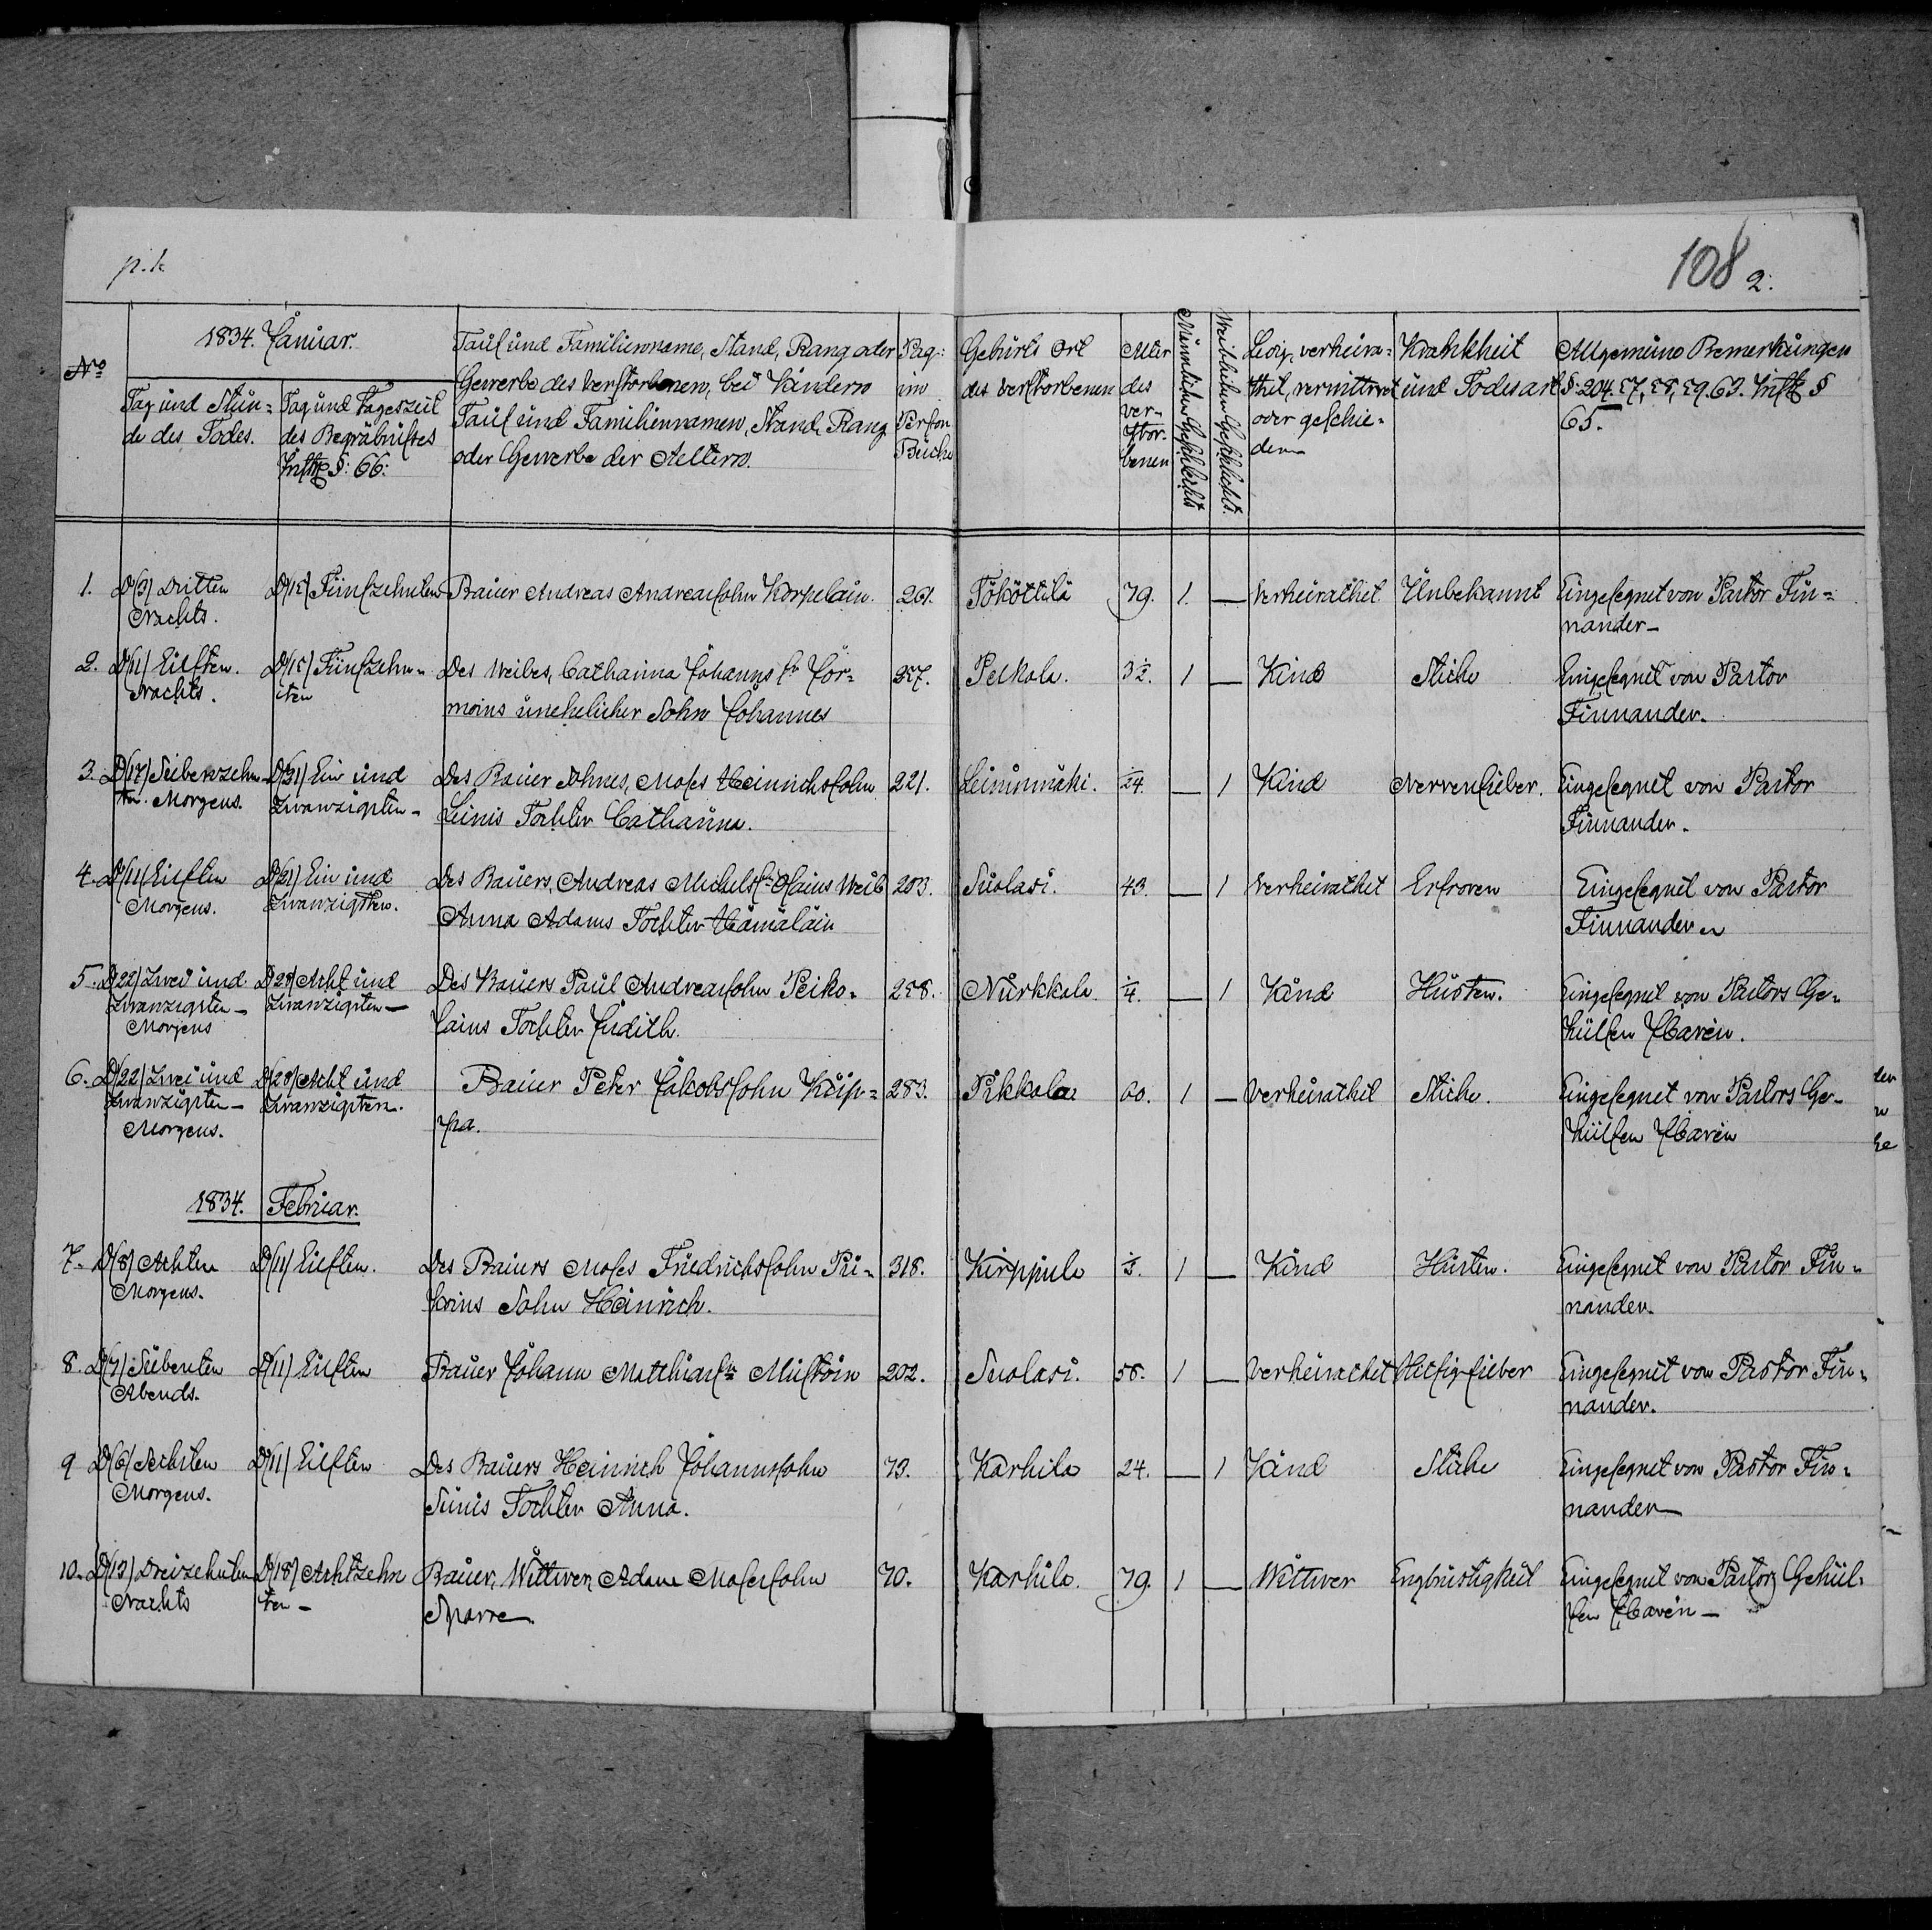 p. 1.
108 2.
No
1834. Januar.
Tag und Stun-
de des Todes.
Tag und Tageszeit
des Begräbnißes
§: 66:
Tauf und Familienname, Stand, Rang oder
Gewerbe des Verstorbenen, bei Kindern
Tauf und Familiennamen, Stand, Rang
oder Gewerbe der Aeltern.
Pag:
im
Person
Buche
Geburts Ort
des Verstorbenen
Alter
des
Ver-
stor-
benen
Männlichen Geschlechts
Weiblichen Geschlechts.
Ledig, verheira-
thet, verwittwet
oder geschie-
den
Krankheit
und Todesart
Allgemeine Bemerkungen
§: 204. 57, 58, 59. 63. §
65.
1. D/3/ Dritten D/15/ Fünfzehnten Bauer Andreas Andreassohn Korpelain. 261. Tököttilä 79. 1. — Verheirathet Unbekannt Eingesegnet von Pastor Fin-
Nachts. nander —
2. D/11/ Eilften. D/15/ Fünfzehn- Des Weibes, Catharina Johanns Jör- 257. Pelkola. 3½. 1 — Kind Stiche Eingesegnet von Pastor
Nachts. ten moins unehelicher Sohn Johannes Finnander.
3. D/17/ Siebenzehn- D/21/ Ein und Des Bauer Sohnes, Moses Heinrichssohn 221. Leinimäki. 1/24. — 1 Kind Nervenfieber. Eingesegnet von Pastor
ten. Morgens. Zwanzigsten — Leinis Tochter Catharina. Finnander.
4. D/11/ Eilften D/21/ Ein und Des Bauers, Andreas Michelss. Weib 203. Suolasi. 43. — 1 Verheirathet Erfroren Eingesegnet von Pastor
Morgens. Zwanzigsten. Anna Adams Tochter Hämäläin Finnander
5. D/22/ Zwei und D/28/ Acht und Des Bauers Paul Andreassohn Peiko- 258. Nurkkala 1/4. — 1 Kind Husten. Eingesegnet von Pastors Ge-
Zwanzigsten — Zwanzigsten — lains Tochter Judith. hülfen
Morgens
6. D/22/ Zwei und D/28/ Acht und Bauer Peter Jakobssohn Kaip- 283. Pikkola 60. 1 — Verheirathet Stiche. Eingesegnet von Pastors Ge-
Zwanzigsten — Zwanzigsten. pa. hülfen
Morgens.
1834. Februar.
7. D/8/ Achten D/11/ Eilften. Des Bauers Moses Friedrichssohn Pü- 318. Kirppula 1/2. 1 — Kind Husten. Eingesegnet von Pastor Fin-
Morgens. Sohn Heinrich. nander.
8. D/7/ Siebenten D/11/ Eilften Bauer Johann Matthiass. 202. Suolasi. 58. 1 — Verheirathet Hitzigfieber Eingesegnet von Pastor Fin-
Abends. nander.
9 D/6/ Sechsten D/11/ Eilften Des Bauers Heinrich Johannssohn 73. Karhila 24. — 1 Kind Stiche Eingesegnet von Pastor Fin-
Morgens. Sunis Tochter Anna. nander —
10. D/13/ Dreizehnten D/18/ Achtzehn Bauer, Wittwer, Adam Mosessohn 70. Karhila. 79. 1 — Wittwer Engbrüstigkeit Eingesegnet von Pastors Gehül-
Nachts ten — Sparre fen